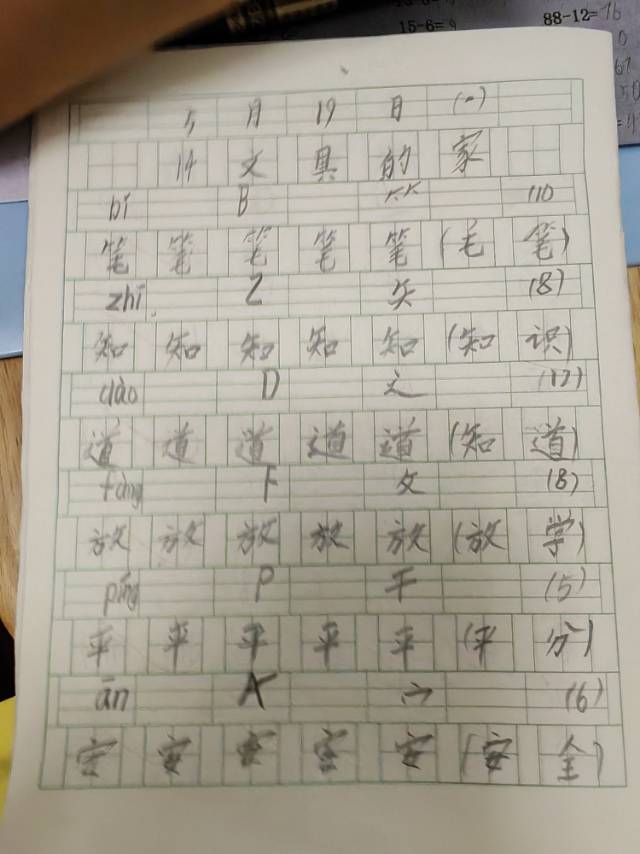 15-6=9
88-12=76
5 月 19 日 (一)
14 文 具 的 家
bǐ B ⺮ (10
笔 笔 笔 笔 笔 (毛 笔)
zhī Z 矢 (8)
知 知 知 知 知 (知 识)
dào D 辶 (12)
道 道 道 道 道 (知 道)
fàng F 攵 (8)
放 放 放 放 放 (放 学)
píng P 干 (5)
平 平 平 平 平 (平 分)
ān A 宀 (6)
安 安 安 安 安 (安 全)